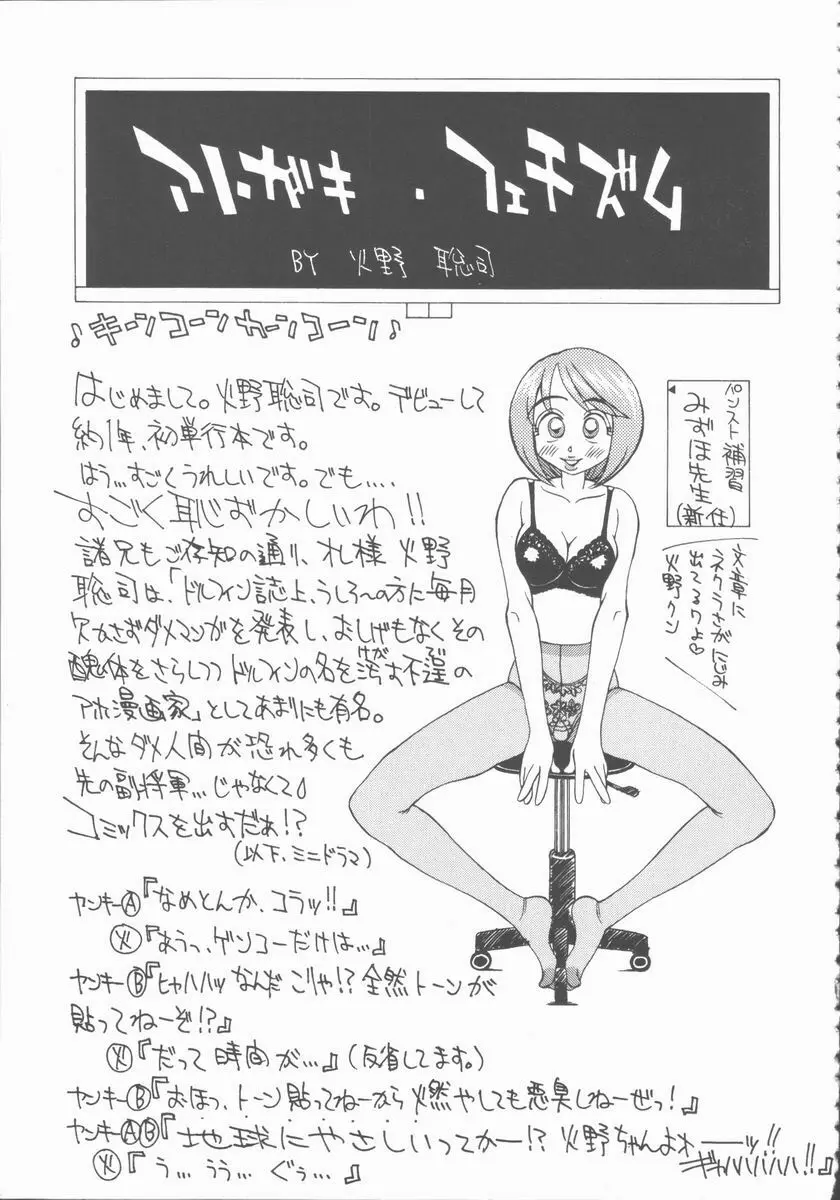 フューチャ・サキニア
BY 火野 聡司
♪キーンコーンカーンコーン♪
はじめまして。火野聡司です。デビューして
約1年、初単行本です。
はう…すごくうれしいです。でも‥‥
すごく恥ずかしいわ!!
諸兄もご存知の通り、オレ様 火野
聡司は、「ドルフィン誌上、うしろの方に毎月
欠かさずダメマンガを発表し、おしげもなくその
醜体をさらしつつドルフィンの名を汚す不逞の
けが ふてい
アホ漫画家」としてあまりにも有名。
そんなダメ人間が恐れ多くも
先の副将軍…じゃなくて♪
コミックスを出すだぁ!?
(以下、ミニドラマ)
ヤンキーⒶ『なめとんか、コラッ!!』
㊋『あうっ、ゲンコーだけは…』
ヤンキーⒷ『ヒャハハッなんだ こりゃ!? 全然トーンが
貼ってねーぞ!?』
㊋『だって時間が…』(反省してます。)
ヤンキーⒷ『おほっ、トーン貼ってねーから燃やしても悪臭しねーぜっ!』
ヤンキーⒶⒷ『地球にやさしいってかー!? 火野ちゃんよおーーッ!!
ギャハハハハハ!!』
㊋『う… うう… ぐぅ…』
◀パンスト補習
みずほ先生
(新任)
文章に
ネクラさがにじみ
出てるワよ♡
火野クン